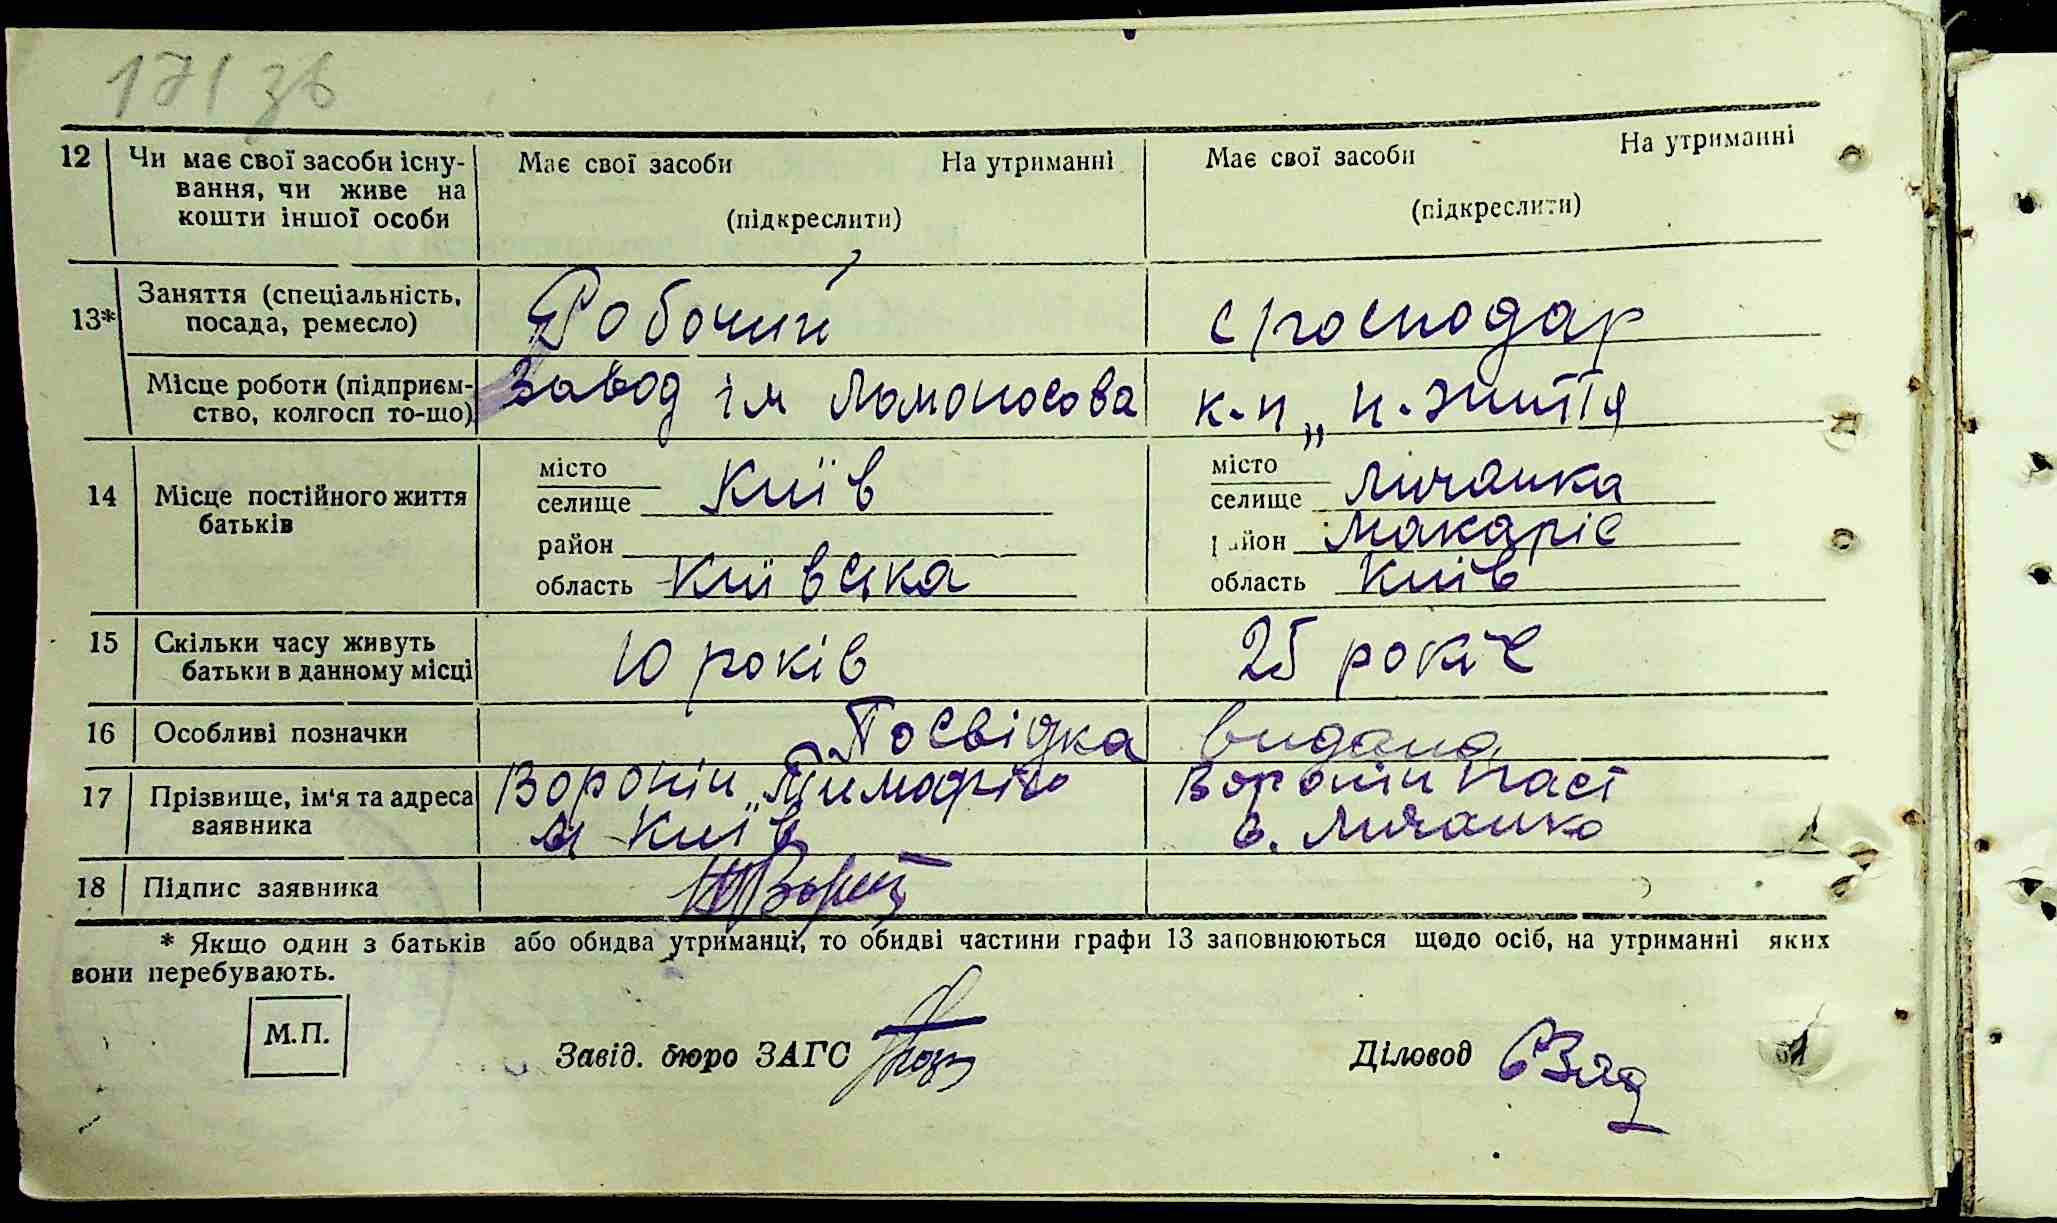 171 зв
12 Чи має свої засоби існу- Має свої засоби На утриманні Має свої засоби На утриманні
вання, чи живе на
кошти іншої особи (підкреслити) (підкреслити)
13* Заняття (спеціальність, Робочий с/господар
посада, ремесло)
Місце роботи (підприєм- Завод ім Ломоносова к-п „н-життя
ство, колгосп то-що)
14 Місце постійного життя місто Київ місто Личанка
батьків селище селище
район район Макарів
область Київська область Київ
15 Скільки часу живуть 10 років 25 років
батьки в данному місці
16 Особливі позначки Посвідка видана
17 Прізвище, ім'я та адреса Воронін Тимофій Воронін Наст
заявника м Київ с. Личанка
18 Підпис заявника
* Якщо один з батьків або обидва утриманці, то обидві частини графи 13 заповнюються щодо осіб, на утриманні яких
вони перебувають.
М.П. Завід. бюро ЗАГС Діловод